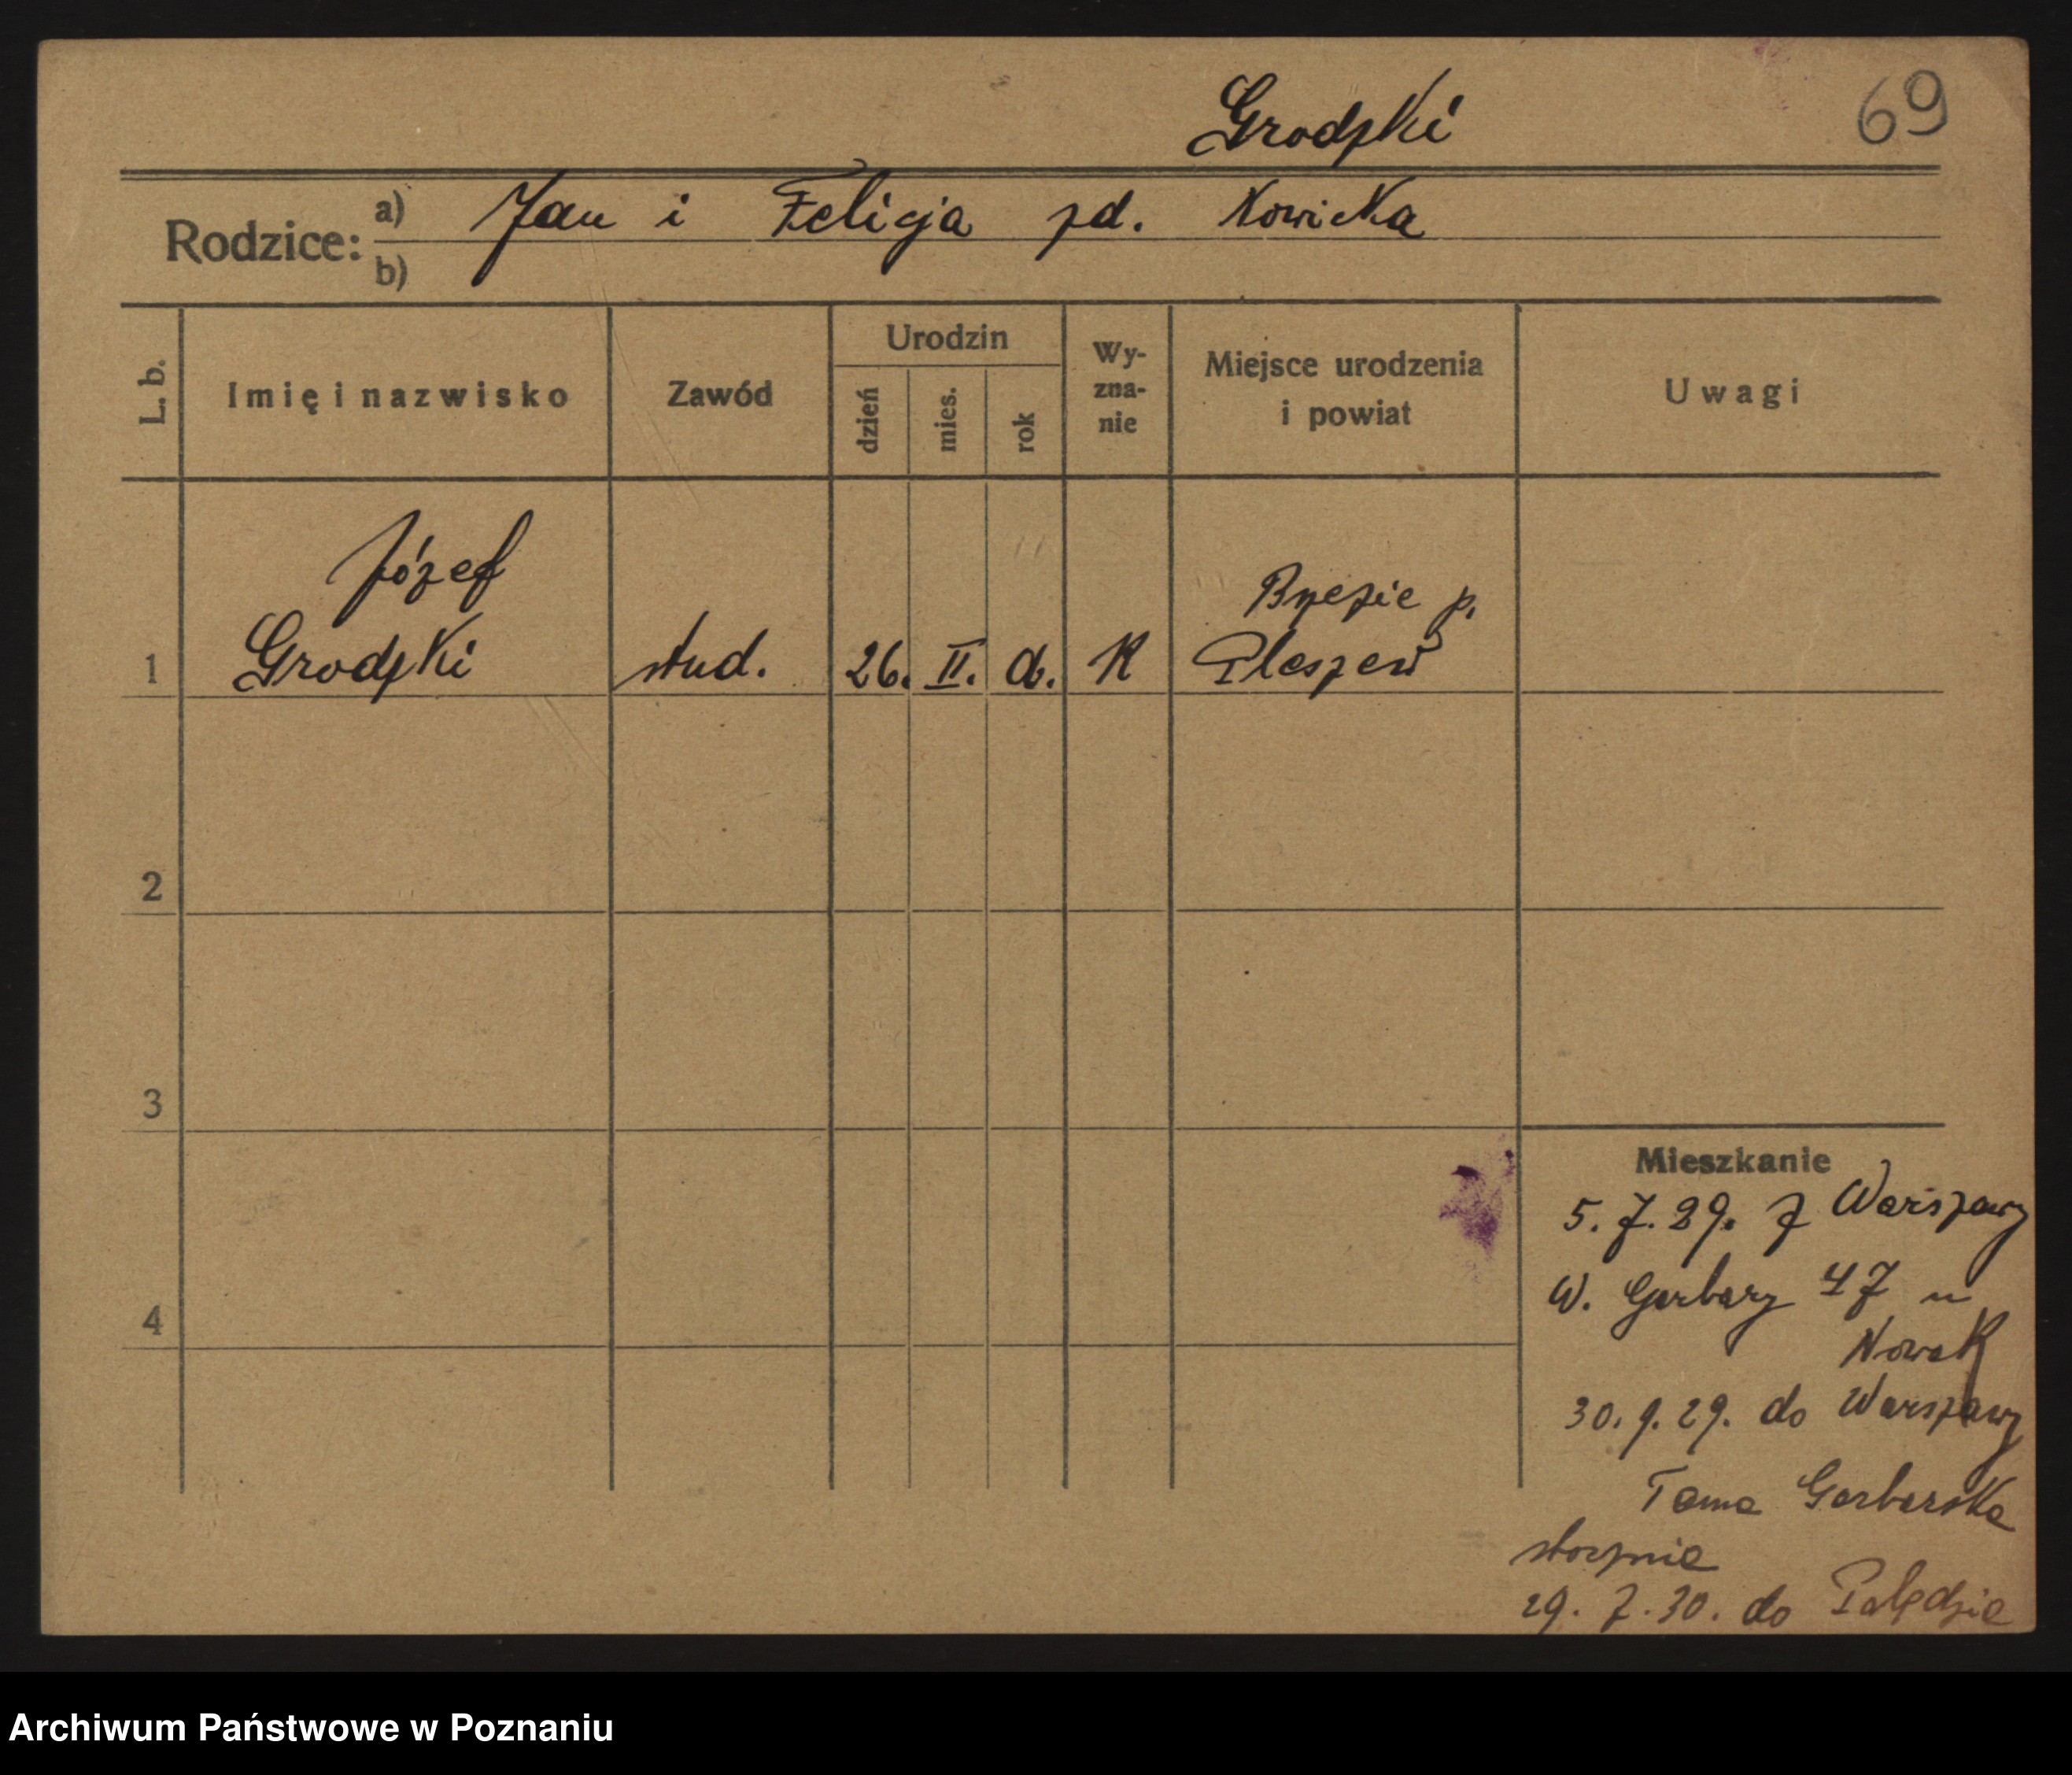 Grodzki
69
Rodzice: a) Jan i Felicja zd. Nowicka
b)
L. b.
Imię i nazwisko
Zawód
Urodzin
dzień
mies.
rok
Wy-
zna-
nie
Miejsce urodzenia
i powiat
Uwagi
Józef
Grodzki
stud.
26. II.
K
Brzezie p.
Pleszew
1
2
3
4
Mieszkanie
5. 7. 29. z Warszawy
W. Garbary 47 u
Nowak
30. 9. 29. do Warszawy
Tama Garbarska
29. 7. 30. do Palędzie
Archiwum Państwowe w Poznaniu